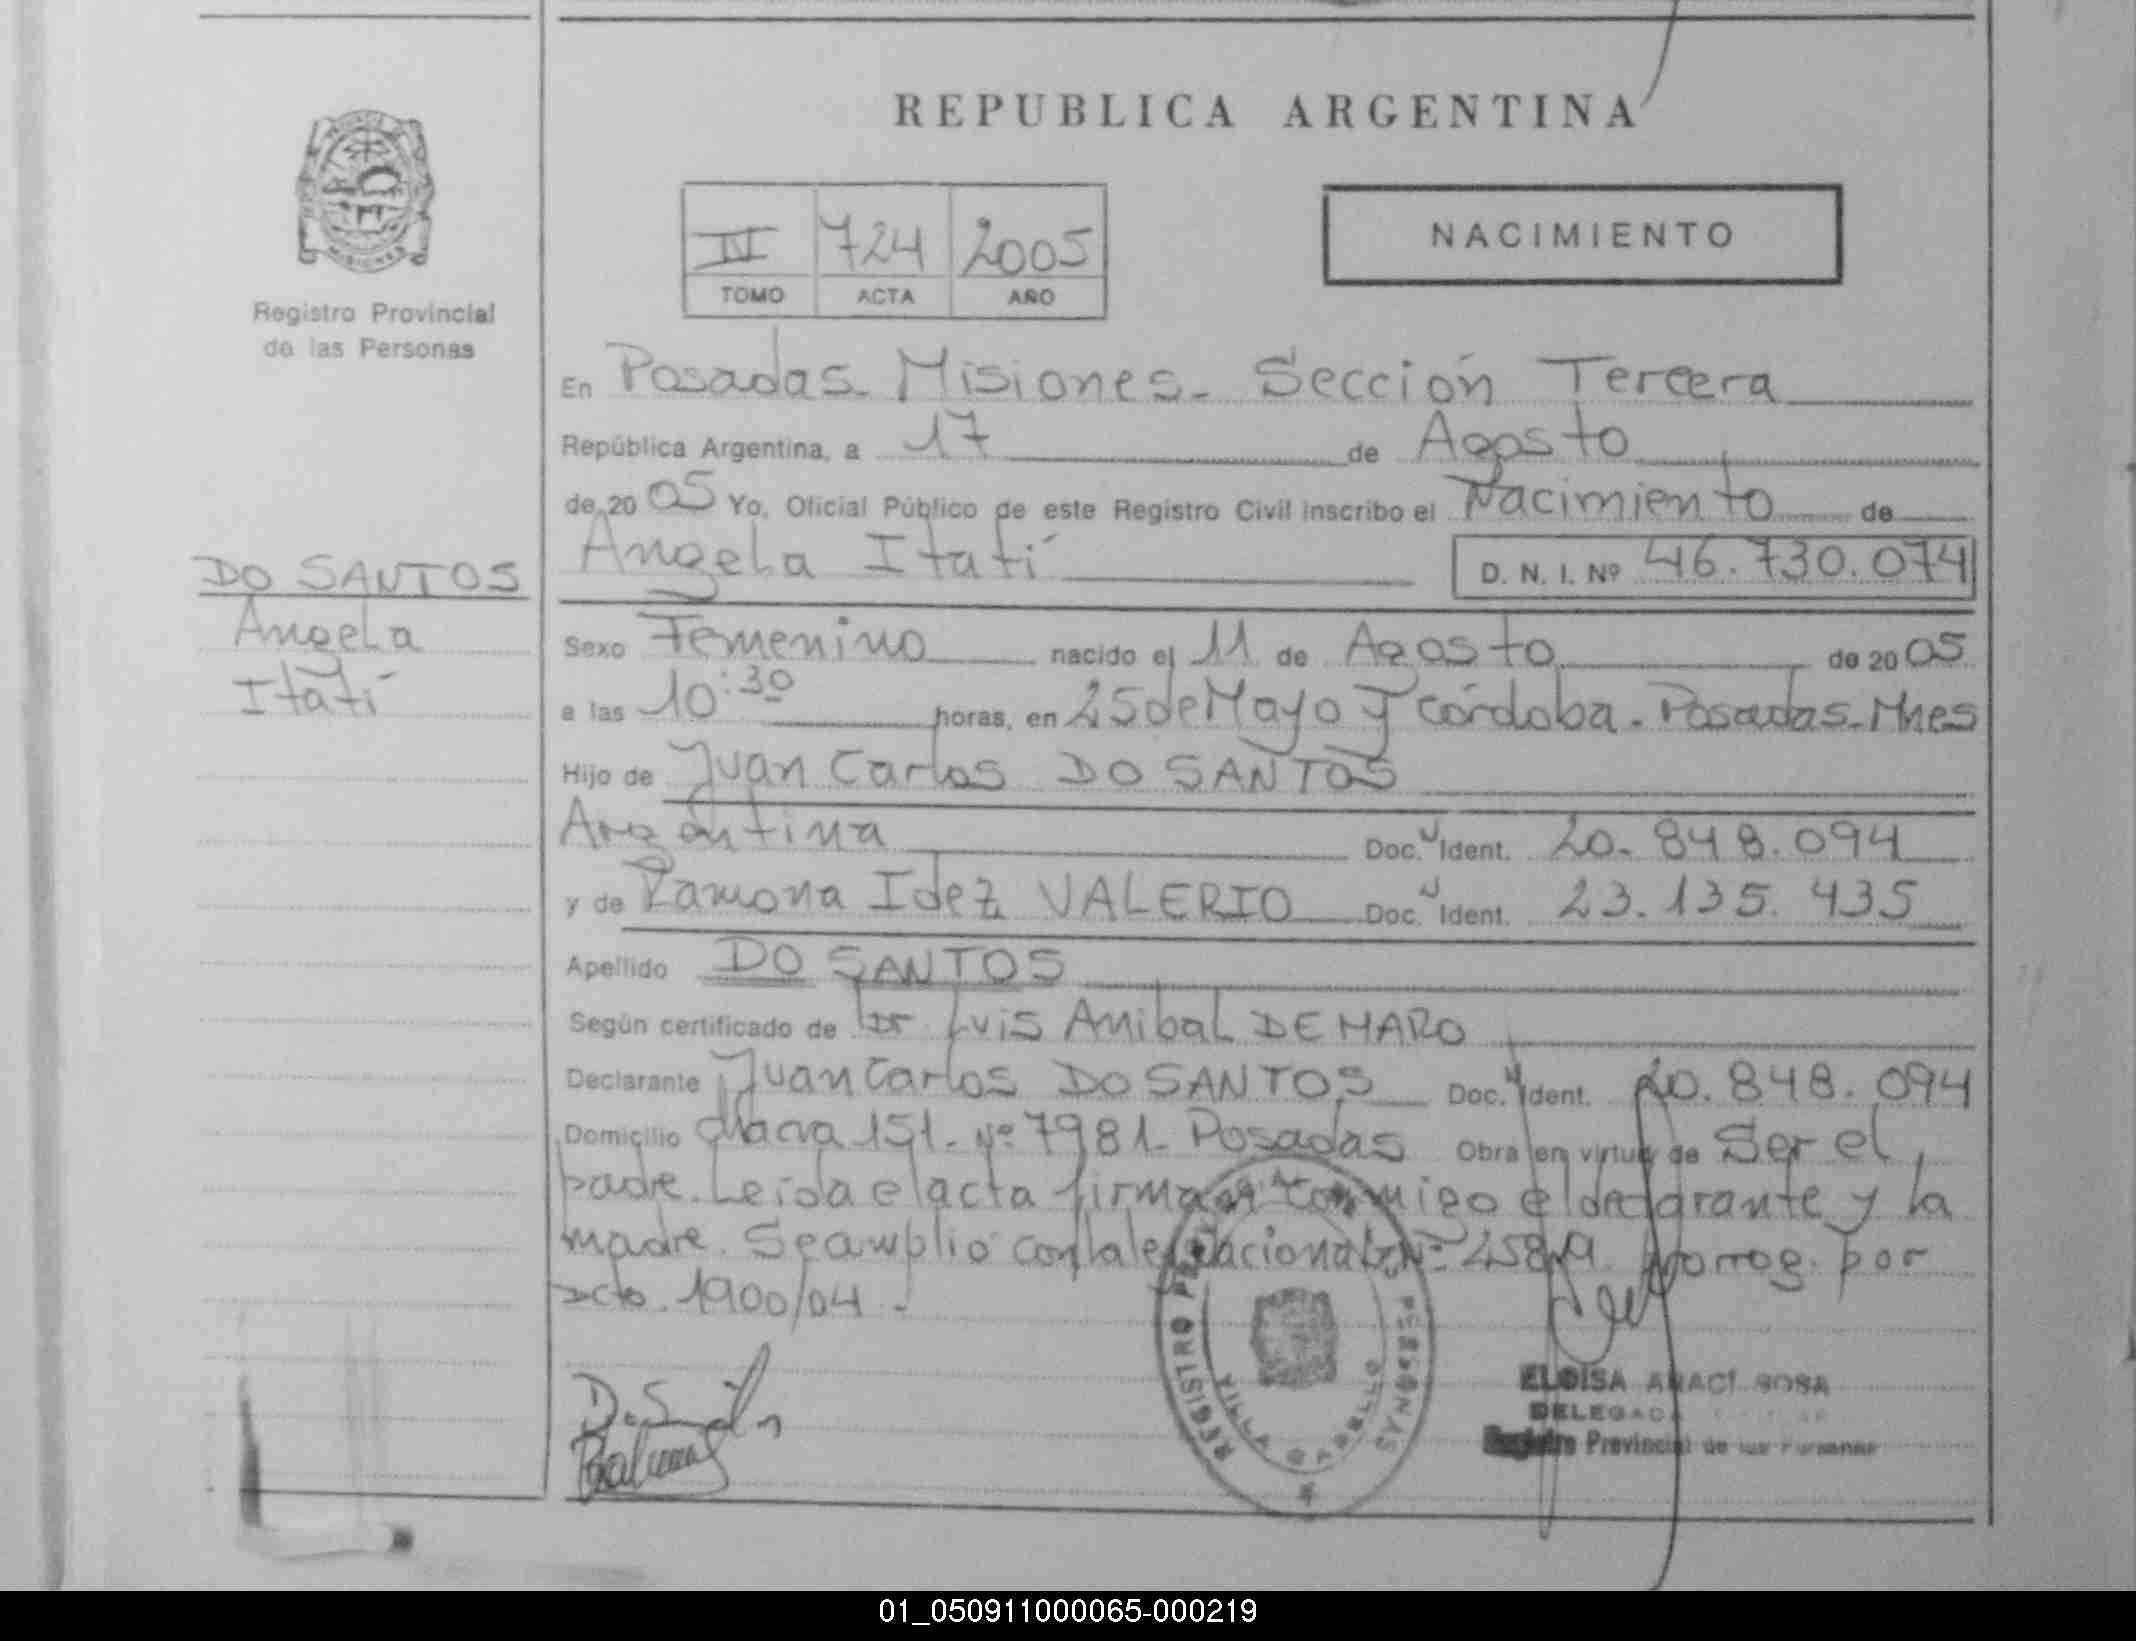 REPUBLICA ARGENTINA
IV 724 2005
TOMO ACTA AÑO
NACIMIENTO
Registro Provincial
de las Personas
En Posadas - Misiones - Sección Tercera
República Argentina, a 17 de Agosto
de 20 05 Yo, Oficial Público de este Registro Civil inscribo el Nacimiento de
Angela Itatí D. N. I. Nº 46.730.074
DO SANTOS
Angela
Itatí
Sexo Femenino nacido el 11 de Agosto de 20 05
a las 10:30 horas, en 25 de Mayo y Córdoba - Posadas - Mnes
Hijo de Juan Carlos DO SANTOS
Argentina Doc. Ident. 20.848.094
y de Ramona Idez VALERIO Doc. Ident. 23.135.435
Apellido DO SANTOS
Según certificado de Dr Luis Anibal DEMARO
Declarante Juan Carlos DO SANTOS Doc. Ident. 20.848.094
Domicilio chacra 151 - Nº 7981 - Posadas Obra en virtud de Ser el
padre. Leida el acta firman conmigo el declarante y la
madre. Se amplió con la ley Nacional Nº prorrog. por
dcto. 1900/04 -
REGISTRO PERSONAS
VILLA CABELLO
ELOISA ARACI SOSA
DELEGADA
Registro Provincial de las Personas
01_050911000065-000219